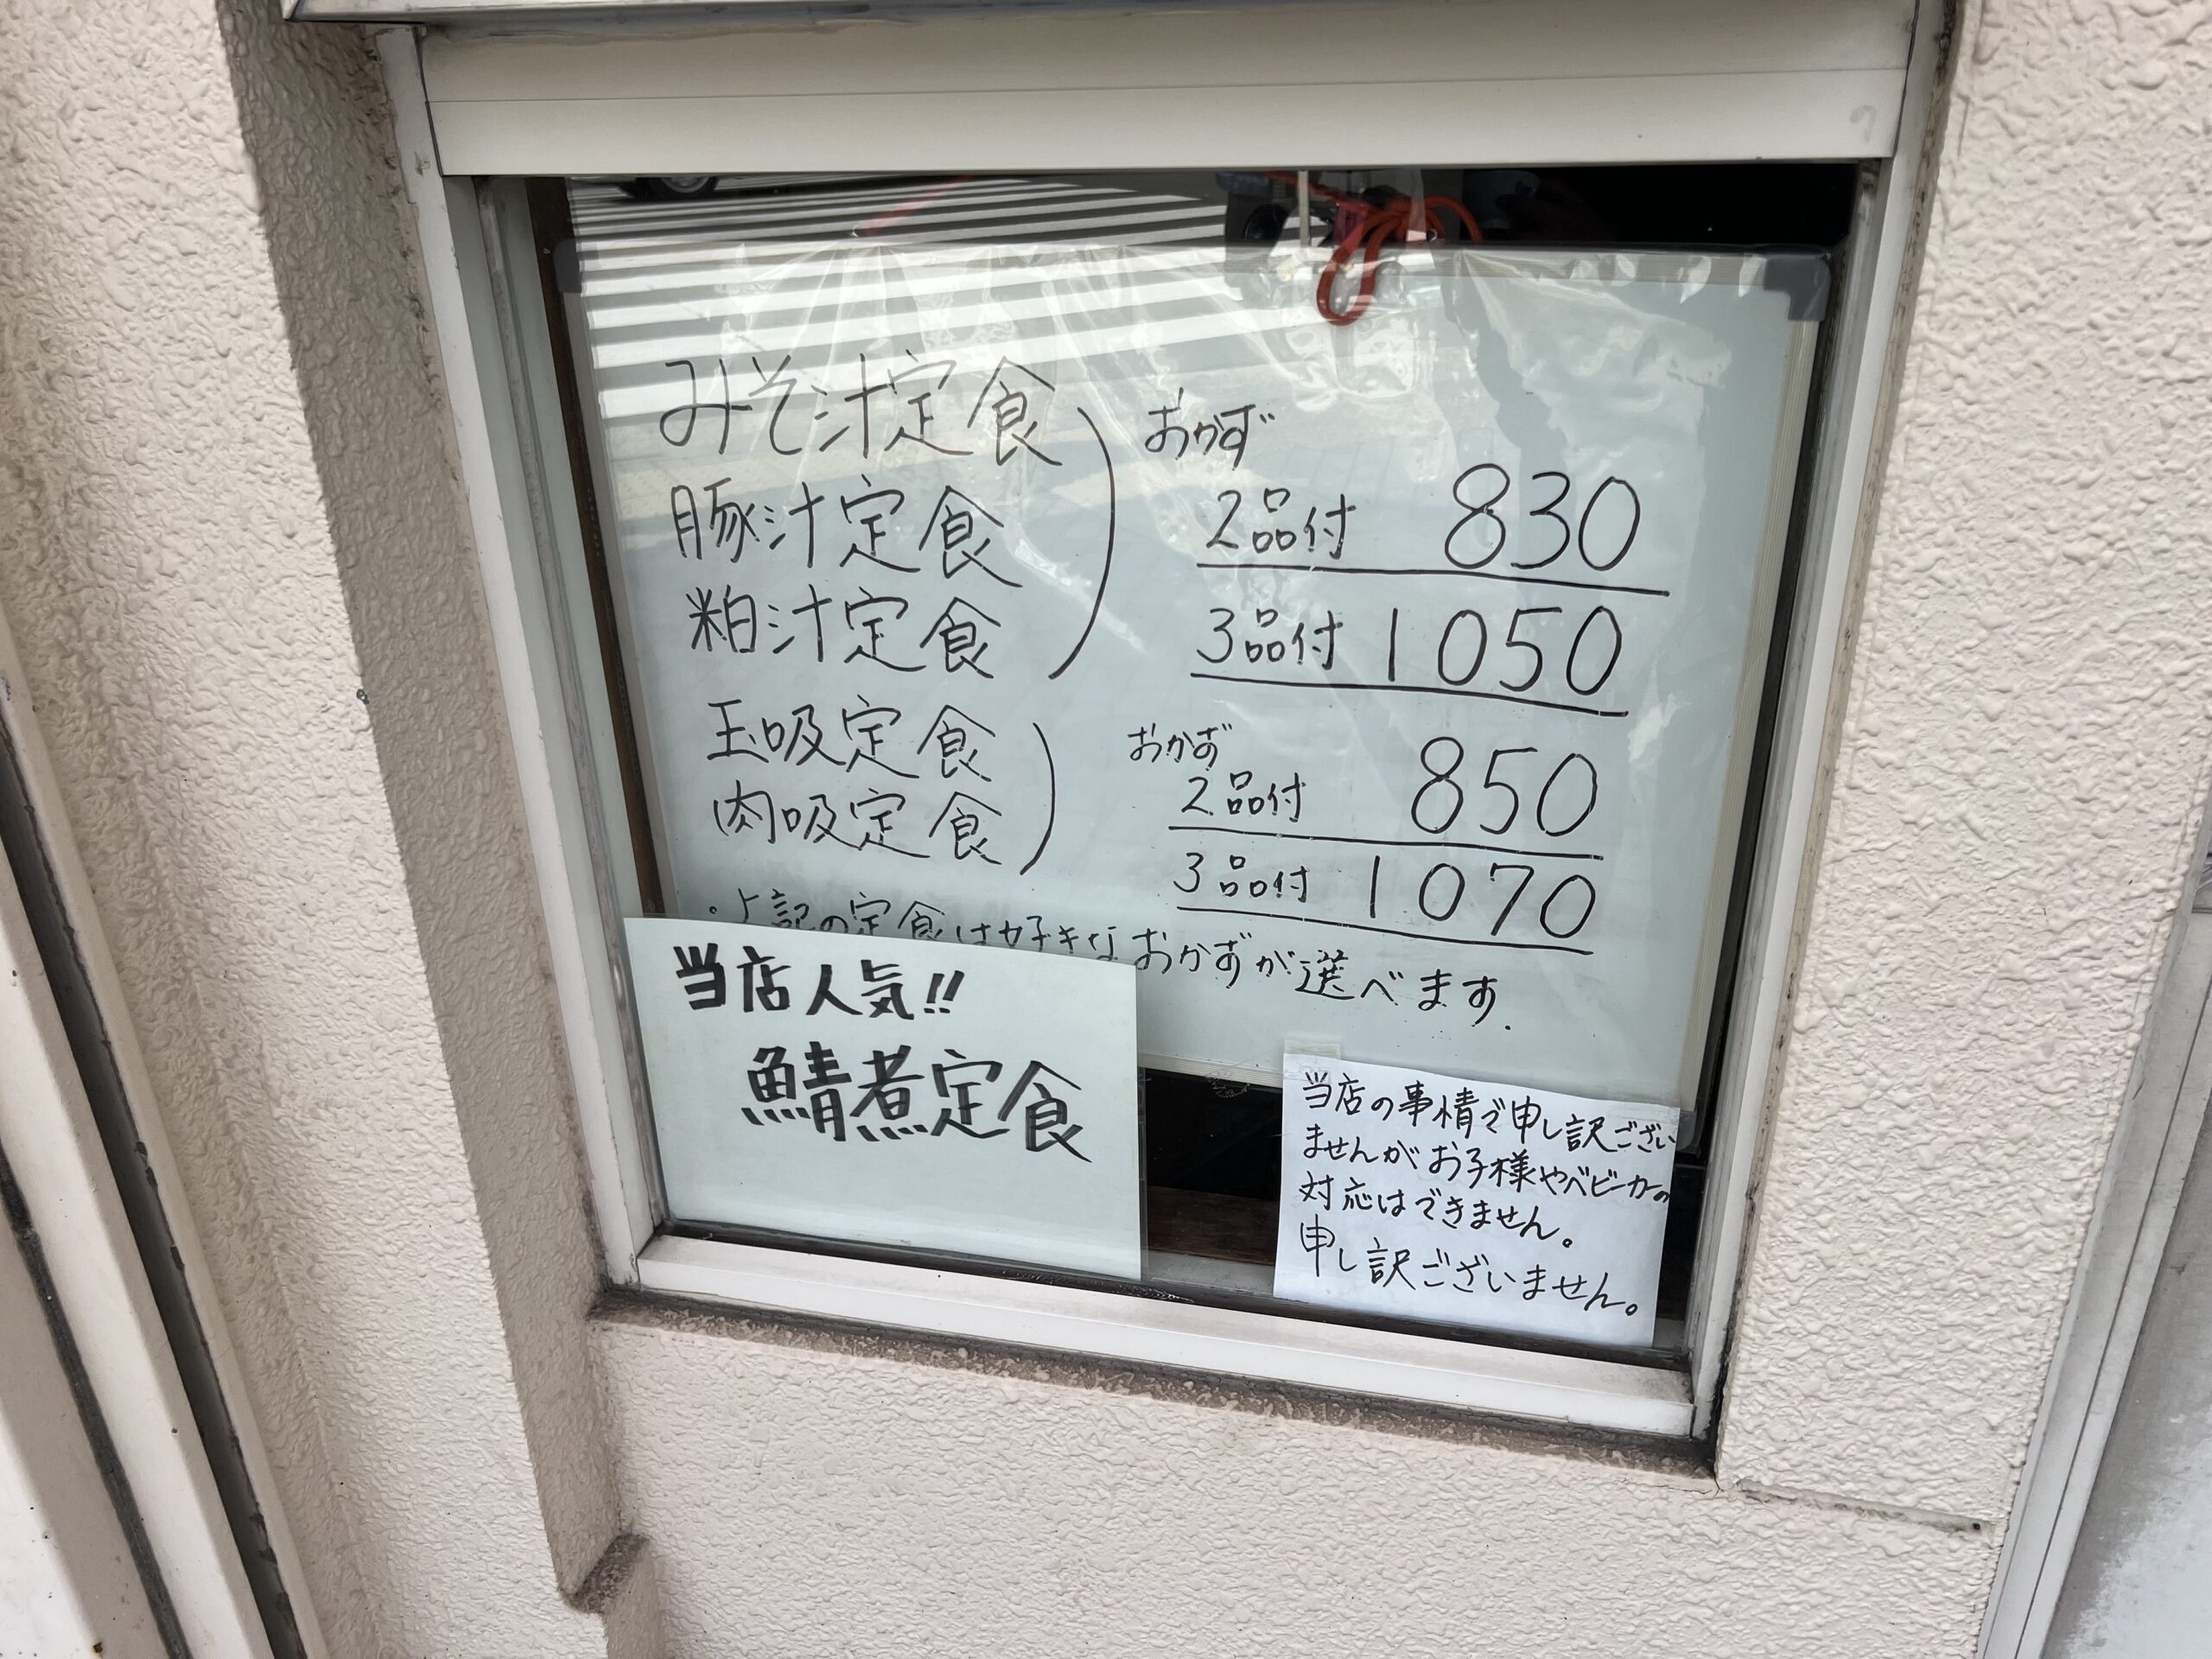 みそ汁定食
豚汁定食
粕汁定食
おかず
2品付 830
3品付 1050
玉吸定食
肉吸定食
おかず
2品付 850
3品付 1070
・上記の定食は好きなおかずが選べます.
当店人気!!
鯖煮定食
当店の事情で申し訳ござい
ませんがお子様やベビーカーの
対応はできません。
申し訳ございません。